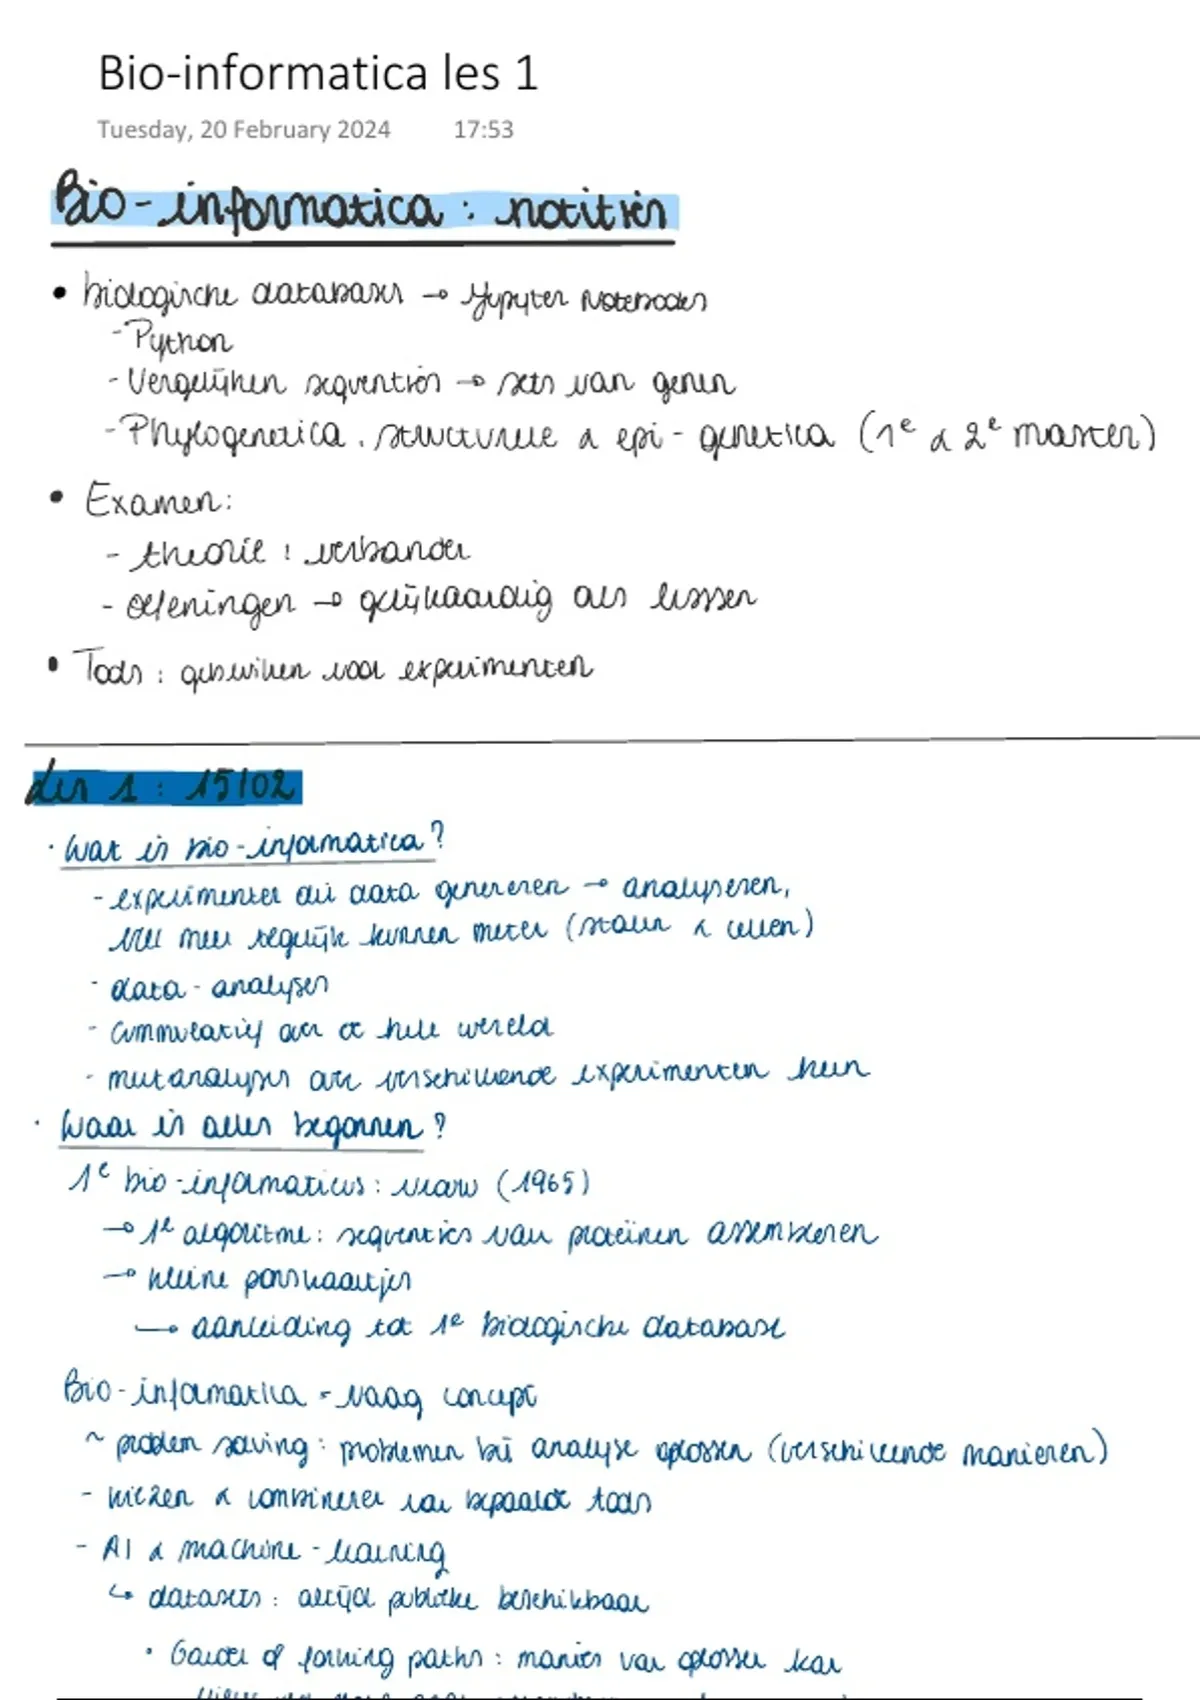 Bio-informatica les 1
Tuesday, 20 February 2024 17:53
Bio-informatica: notities
• biologische databases → Jupyter Notebooks
- Python
- Vergelijken sequenties → sets van genen
- Phylogenetica, structurele & epi-genetica (1e & 2e master)
• Examen:
- theorie: verbanden
- oefeningen → gelijkaardig als lessen
• Tools: gebruiken voor experimenten
Les 1: 15/02
· Wat is bio-informatica?
- experimenten die data genereren → analyseren,
veel meer tegelijk kunnen meten (stalen & cellen)
- data-analyses
- cummulatief over de hele wereld
- metanalyses over verschillende experimenten heen
· Waar is alles begonnen?
1e bio-informaticus: vrouw (1965)
→ 1e algoritme: sequenties van proteïnen assembleren
→ kleine ponskaartjes
→ aanleiding tot 1e biologische database
Bio-informatica = vaag concept
~ problem solving: problemen bij analyse oplossen (verschillende manieren)
- kiezen & combineren van bepaalde tools
- AI & machine-learning
↳ datasets: altijd publieke beschikbaar
• Garden of forking paths: manier van oplossen kan